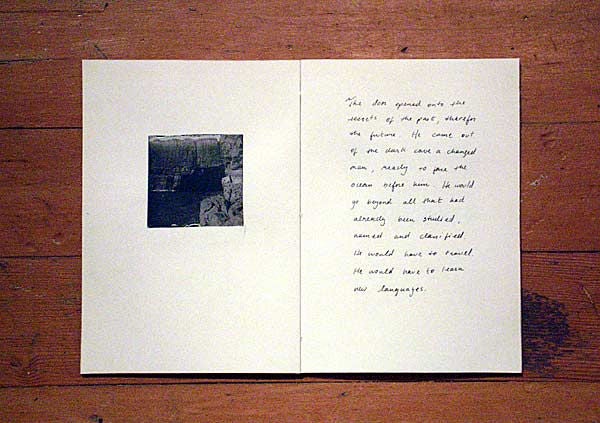 The door opened onto the
secrets of the past, therefor
the future. He came out
of the dark cave a changed
man, ready to face the
ocean before him. He would
go beyond all that had
already been studied,
named and classified.
He would have to travel.
He would have to learn
new languages.